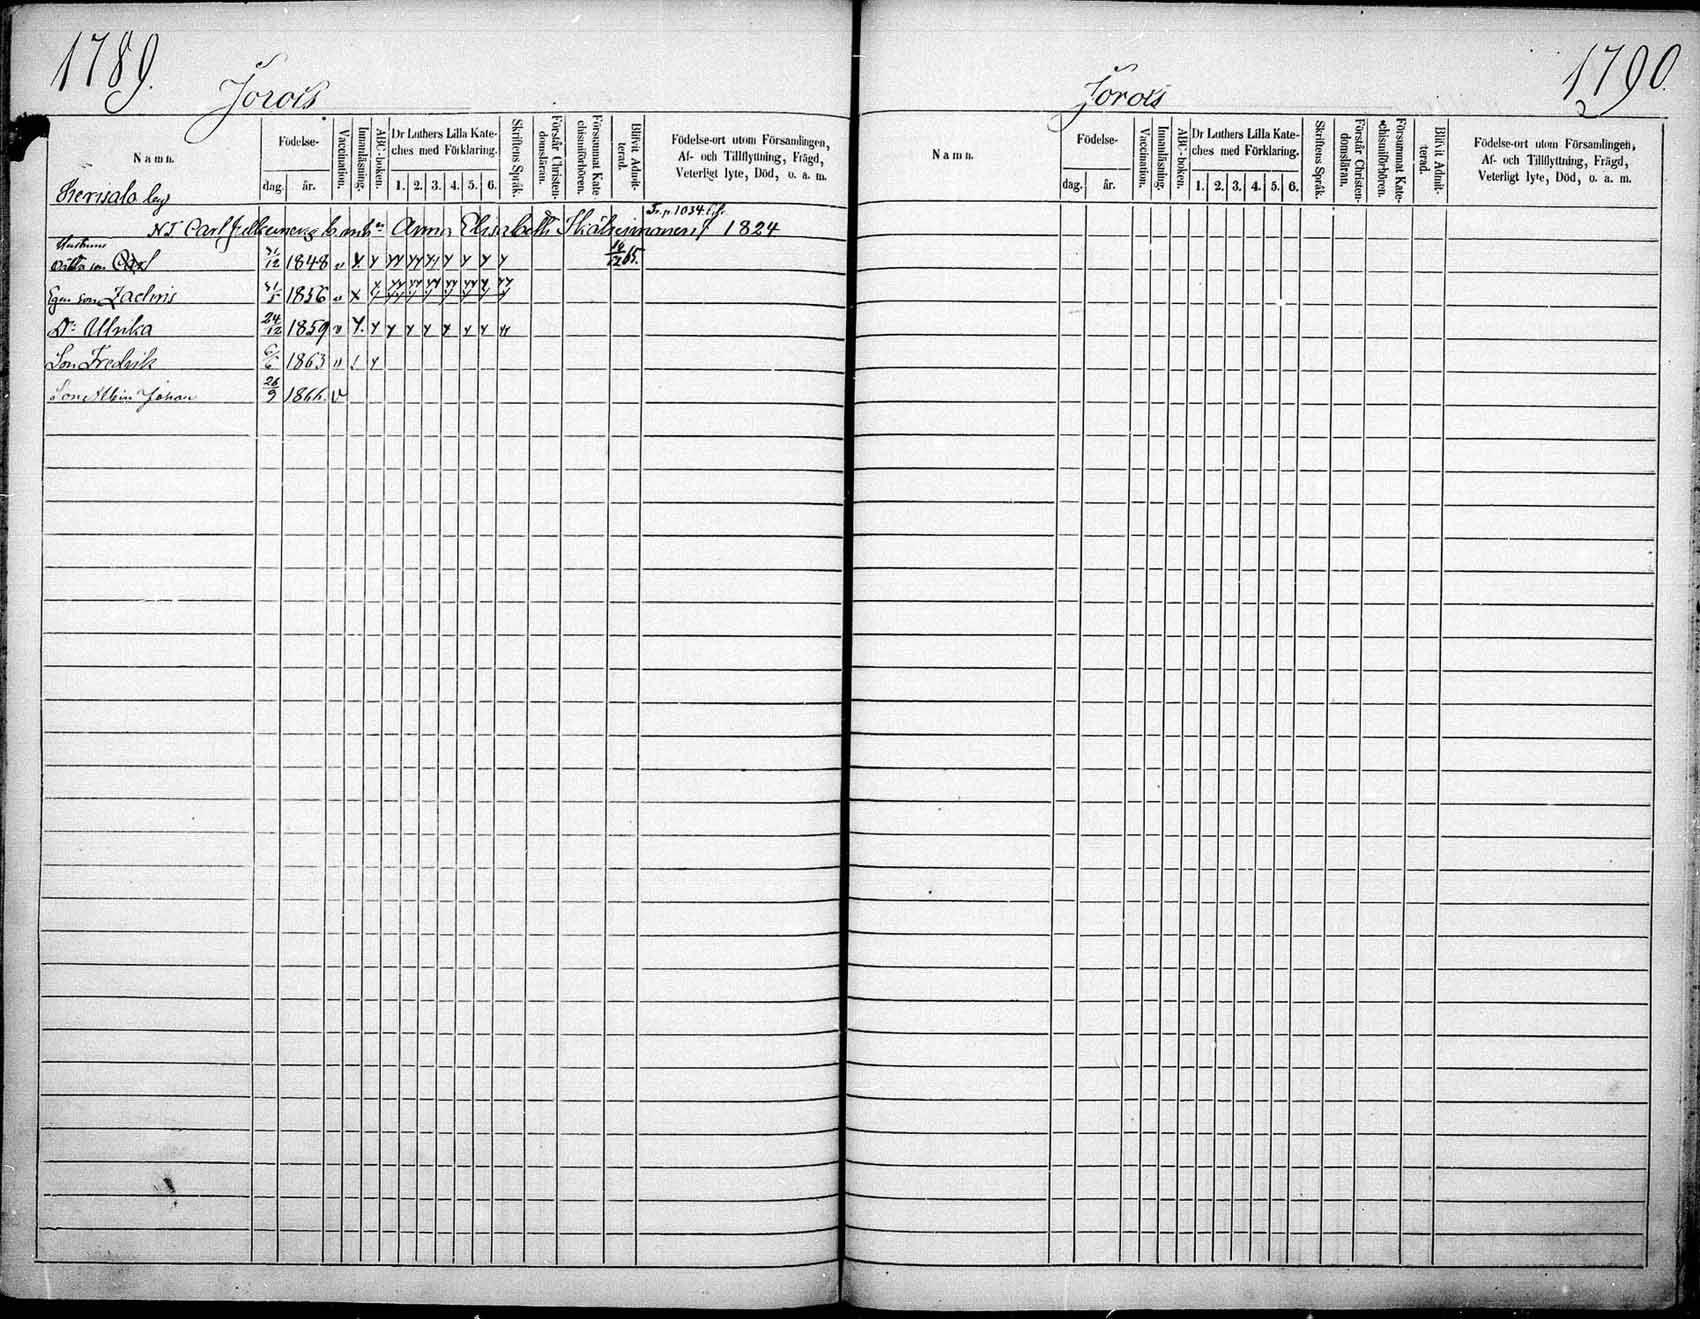 1789.
Jorois
Namn.
Födelse-
dag. år.
Vaccination.
Innanläsning.
ABC-boken.
Dr Luthers Lilla Kate-
ches med Förklaring.
1. 2. 3. 4. 5. 6.
Skriftens Språk.
Förstår Christen-
domsläran.
Försummat Kate-
chismiförhören.
Blifvit Admit-
terad.
Födelse-ort utom Församlingen,
Af- och Tillflyttning, Frägd,
Veterligt lyte, Död, o. a. m.
Kerisalo
p. 1034
Carl Anna Elisabeth 1824
Hustruns
son Carl 31/12 1848 v 65.
Egen son Zachris 31/5 1856 v
Dr Ulrika 24/12 1859 v
Son Fredrik 6/6 1863 v
Son Albin Johan 26/9 1866. v
1790.
Jorois
Namn.
Födelse-
dag. år.
Vaccination.
Innanläsning.
ABC-boken.
Dr Luthers Lilla Kate-
ches med Förklaring.
1. 2. 3. 4. 5. 6.
Skriftens Språk.
Förstår Christen-
domsläran.
Försummat Kate-
chismiförhören.
Blifvit Admit-
terad.
Födelse-ort utom Församlingen,
Af- och Tillflyttning, Frägd,
Veterligt lyte, Död, o. a. m.